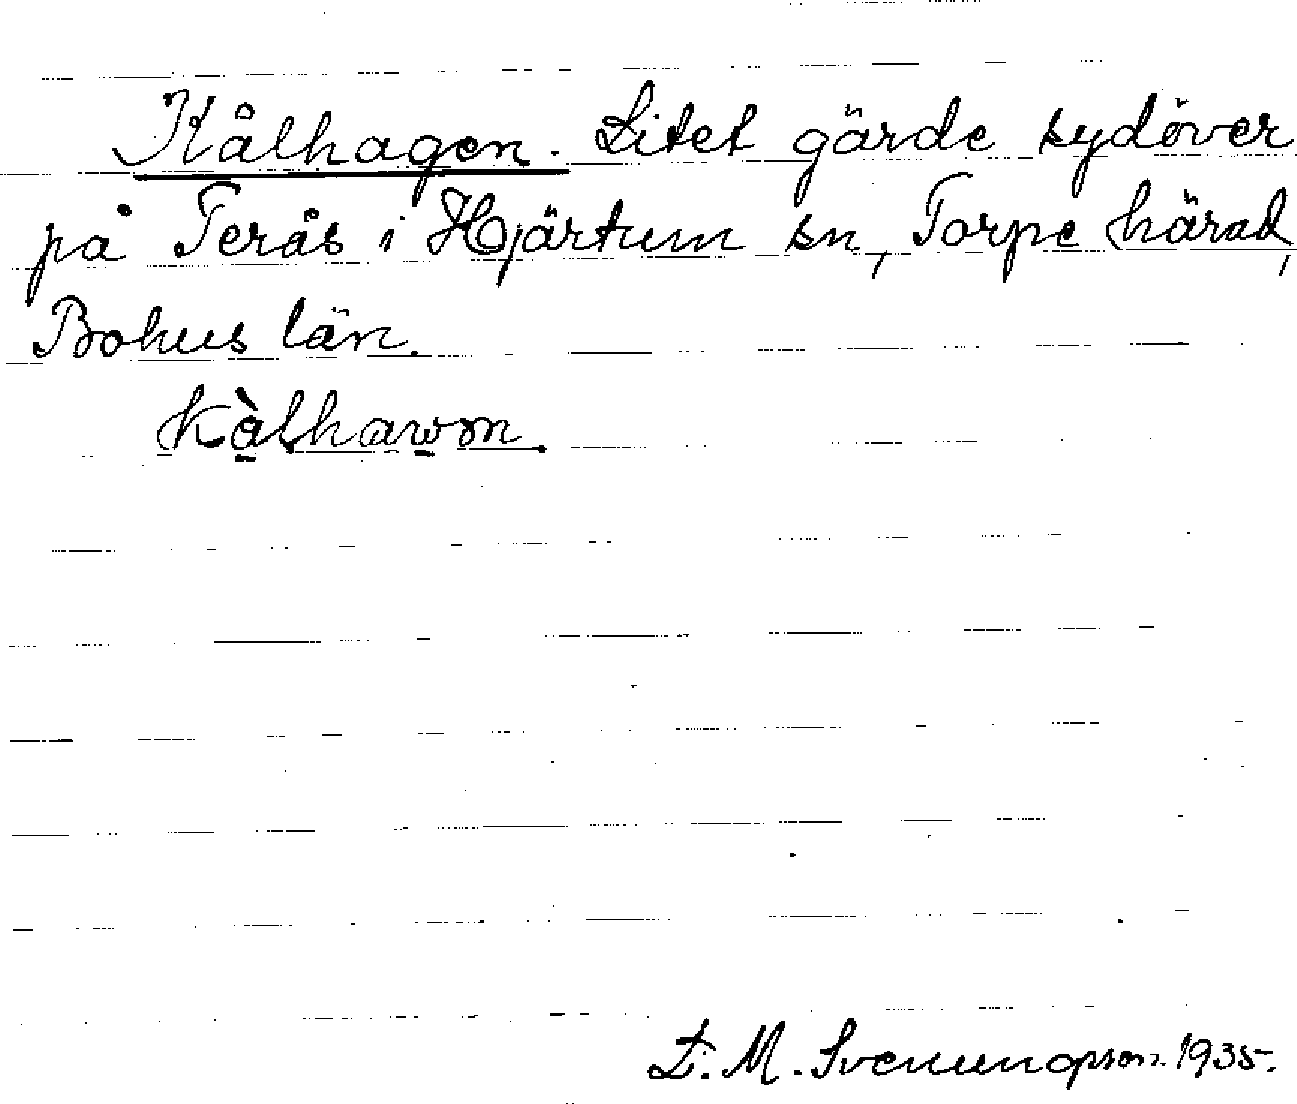 Kålhagen. Litet gärde sydöver
på Terås i Hjärtum sn, Torpe härad,
Bohus län.
kàlhawən.
D. M. Svenungsson 1935.